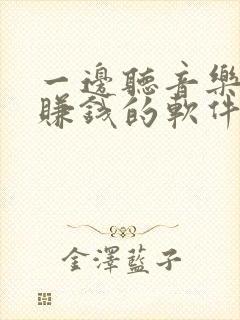 一邊聽音樂
賺錢的軟件
金澤藍子